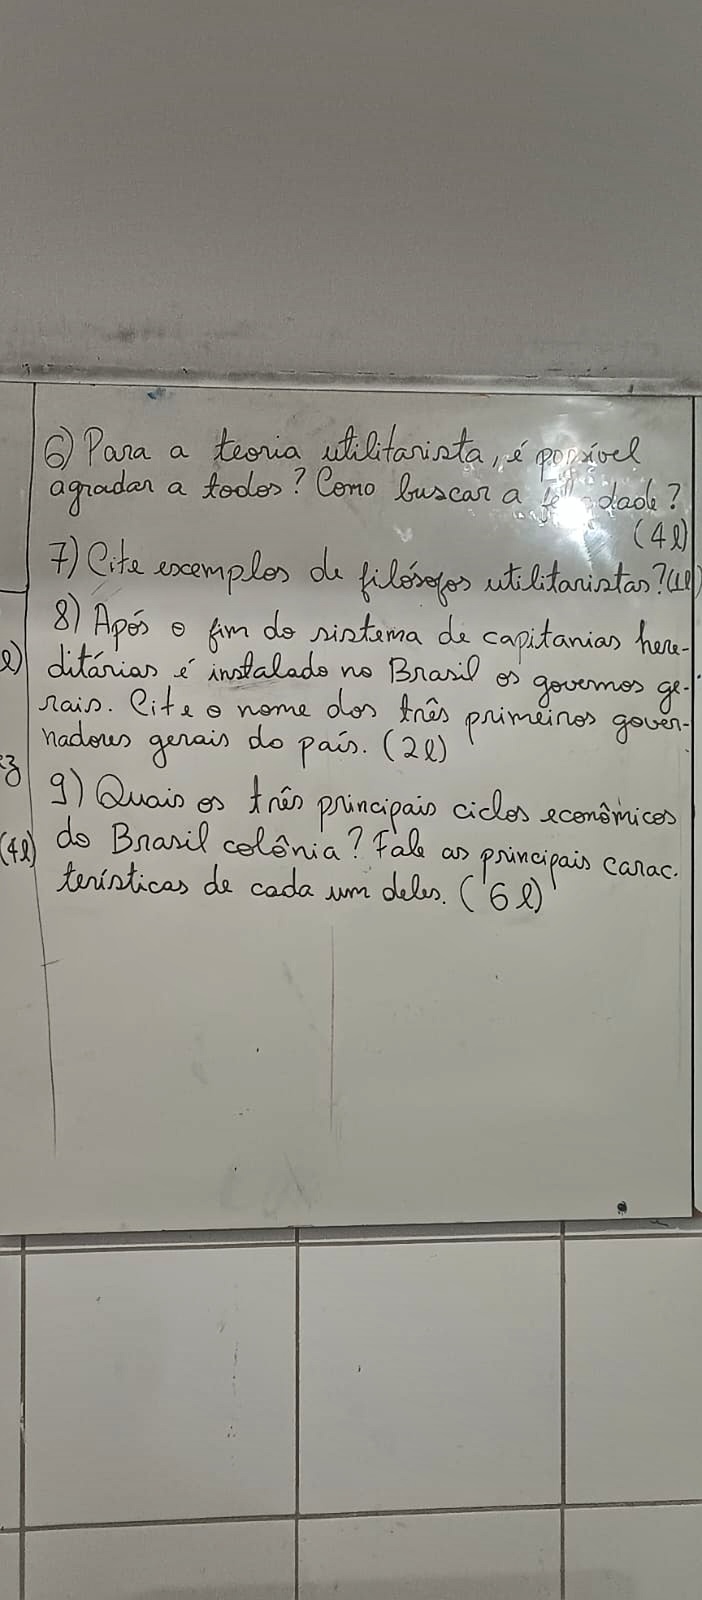 6) Para a teoria utilitarista, é possível
agradar a todos? Como buscar a felicidade?
(4l)
7) Cite exemplos de filósofos utilitaristas? (1l)
8) Após o fim do sistema de capitanias here-
l) ditárias é instalado no Brasil os governos ge-
rais. Cite o nome dos três primeiros gover-
nadores gerais do país. (2l)
9) Quais os três principais ciclos econômicos
(4l) do Brasil colônia? Fale as principais carac.
terísticas de cada um deles. (6l)